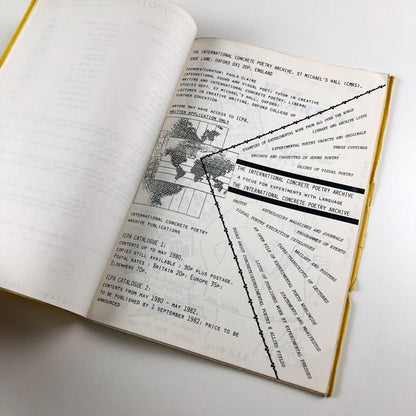 THE INTERNATIONAL CONCRETE POETRY ARCHIVE, ST MICHAEL'S HALL (CMRS),
SHOE LANE, OXFORD OX1 2DP, ENGLAND
FOUNDER/CURATOR: PAULA CLAIRE
INTERNATIONAL SOUND AND VISUAL POET, TUTOR IN CREATIVE
WRITING AND INTERNATIONAL CONCRETE POETRY, LIBERAL
STUDIES DEPT, ST MICHAEL'S HALL, OXFORD;
LECTURER IN CREATIVE WRITING, OXFORD COLLEGE OF
FURTHER EDUCATION
ANYONE MAY HAVE ACCESS TO ICPA,
WRITTEN APPLICATION ONLY
EXAMPLES OF EXPERIMENTAL WORK FROM ALL OVER THE WORLD
LIBRARY AND ARCHIVE LISTS
EXPERIMENTAL POETRY OBJECTS AND ORIGINALS
PRESS CUTTINGS
RECORDS AND CASSETTES OF SOUND POETRY
SLIDES OF VISUAL POETRY
THE INTERNATIONAL CONCRETE POETRY ARCHIVE
A FOCUS FOR EXPERIMENTS WITH LANGUAGE
THE INTERNATIONAL CONCRETE POETRY ARCHIVE
ANTHOLOGIES MAGAZINES AND JOURNALS
PHOTOS
PROGRAMMES OF EVENTS
VISUAL POETRY EXHIBITION CATALOGUES
MAILART AND POSTERS
TYPESCRIPTS OF LECTURES
STATEMENTS AND MANIFESTOS
LISTS OF PUBLISHED WORK BY EXPERIMENTAL PRESSES
POETRY & ALLIED FIELDS
INTERNATIONAL CONCRETE POETRY
ARCHIVE PUBLICATIONS
ICPA CATALOGUE 1:
CONTENTS UP TO MAY 1980.
COPIES STILL AVAILABLE : 90p PLUS POSTAGE.
POSTAL RATES : BRITAIN 20p; EUROPE 35p;
ELSEWHERE 70p.
ICPA CATALOGUE 2:
CONTENTS FROM MAY 1980 - MAY 1982.
TO BE PUBLISHED BY 1 SEPTEMBER 1982; PRICE TO BE
ANNOUNCED